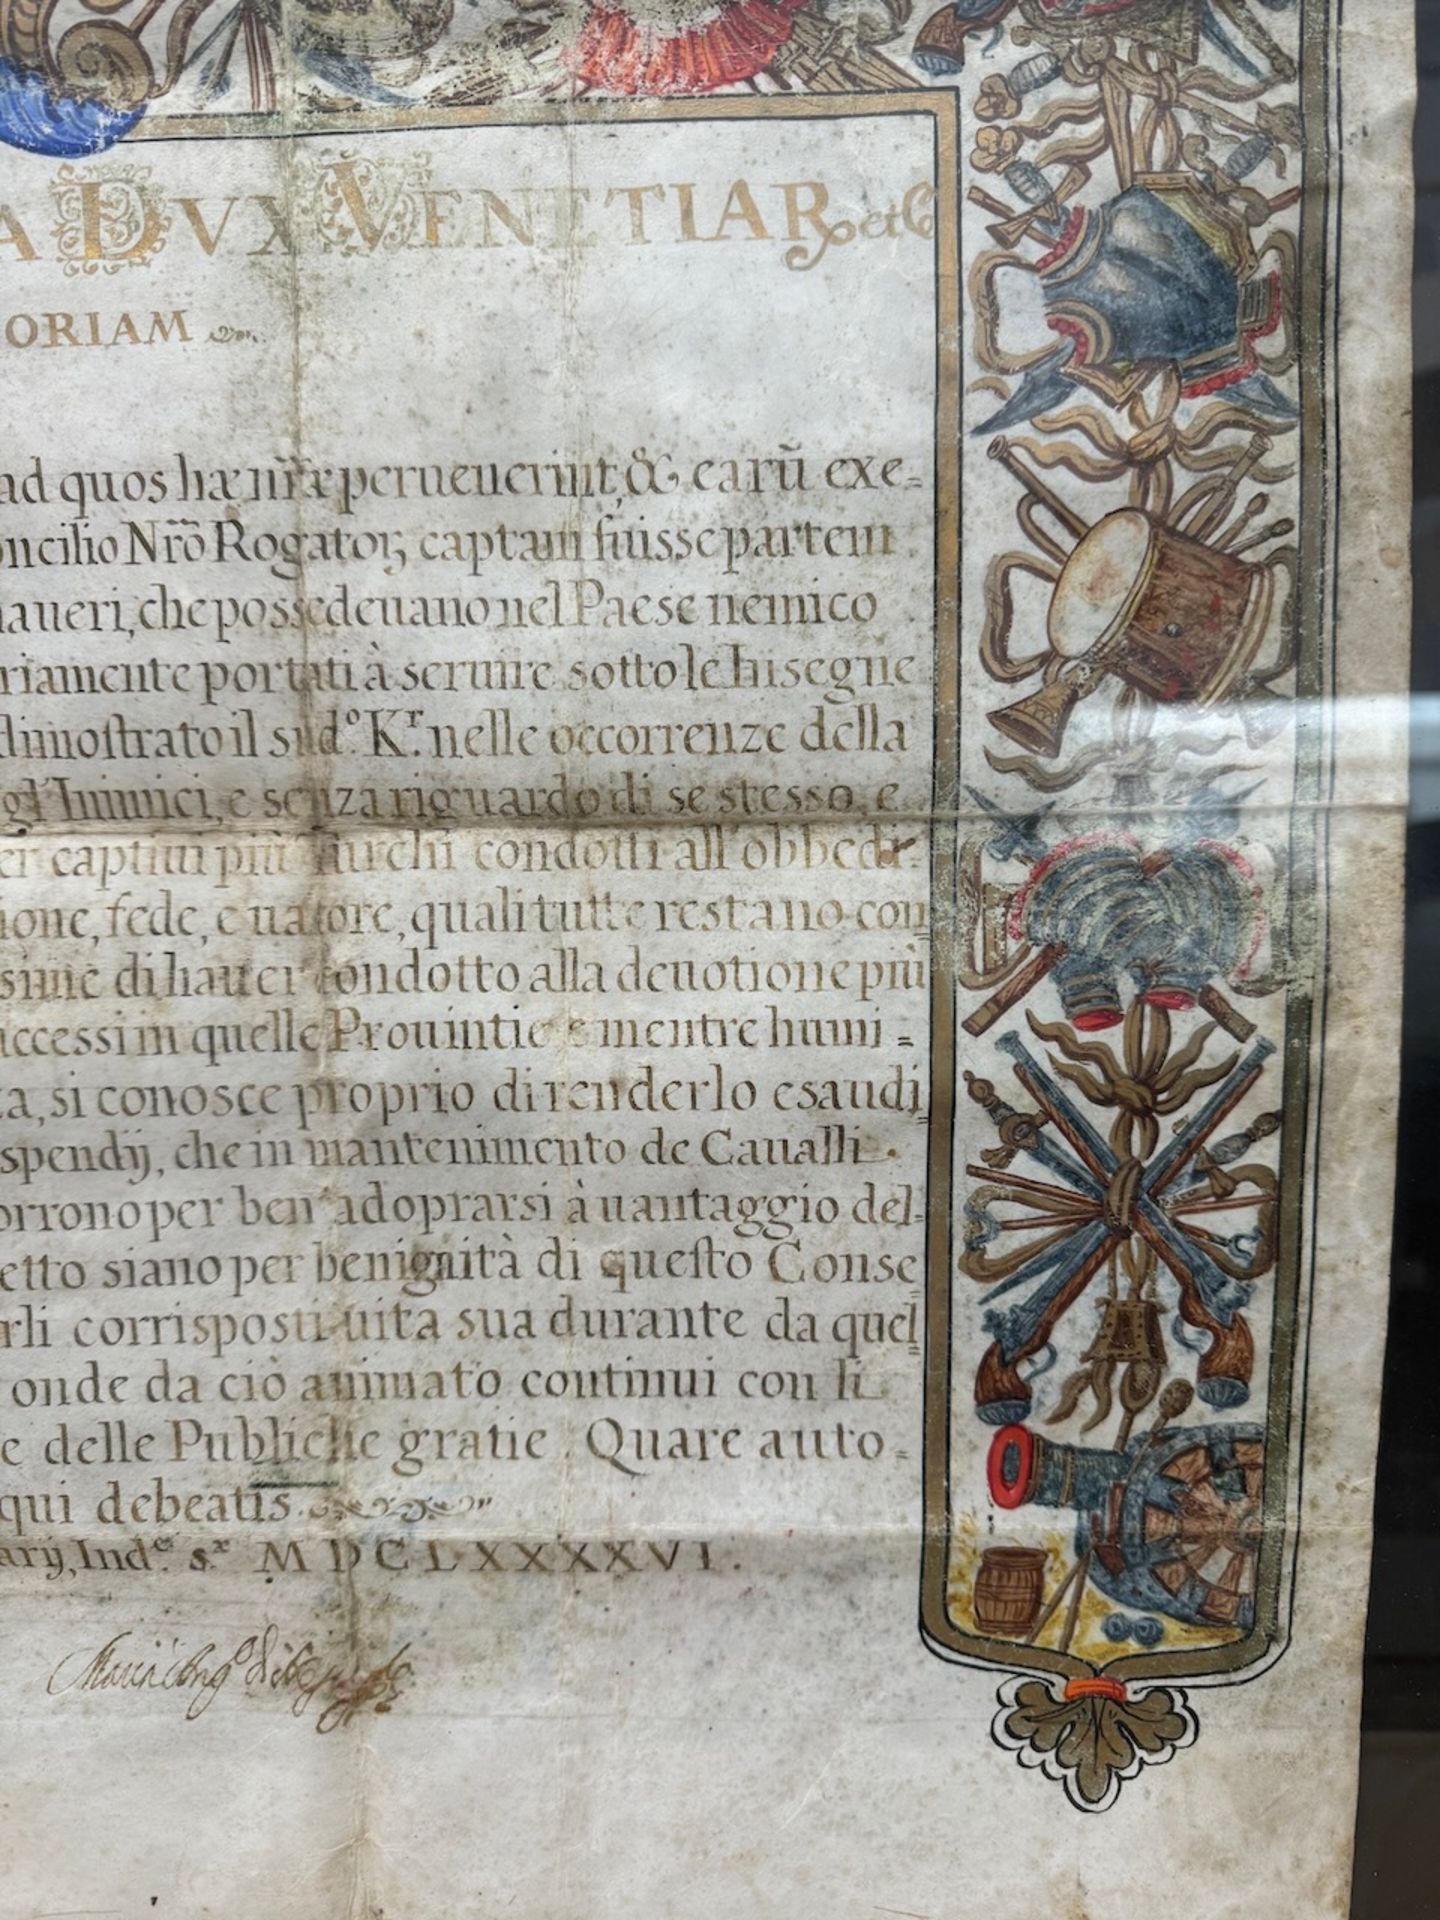 A DVX VENETIAR et C
ORIAM
ad quos hæ nr̃æ peruenerint, & earũ exe=
oncilio Nr̃o Rogator captam fuisse partem
haueri, che possedeuano nel Paese nemico
riamente portati à seruire sotto le Insegne
dimostrato il sud.º K.r nelle occorrenze della
gl'Inimici, e senza riguardo di se stesso, e
er captiui più Turchi condotti all'obbedi=
ione, fede, e ualore, quali tutte restano con=
sime di hauer condotto alla deuotione più
uccessi in quelle Prouintie e mentre humi=
ta, si conosce proprio di renderlo esaudi
spendij, che in mantenimento de Caualli
orrono per ben adoprarsi à uantaggio del=
etto siano per benignità di questo Conse
rli corrisposti uita sua durante da quel=
onde da ciò animato continui con li
e delle Publiche gratie. Quare auto=
qui debeatis.
arij, Ind.e s.x MDCLXXXXVI.